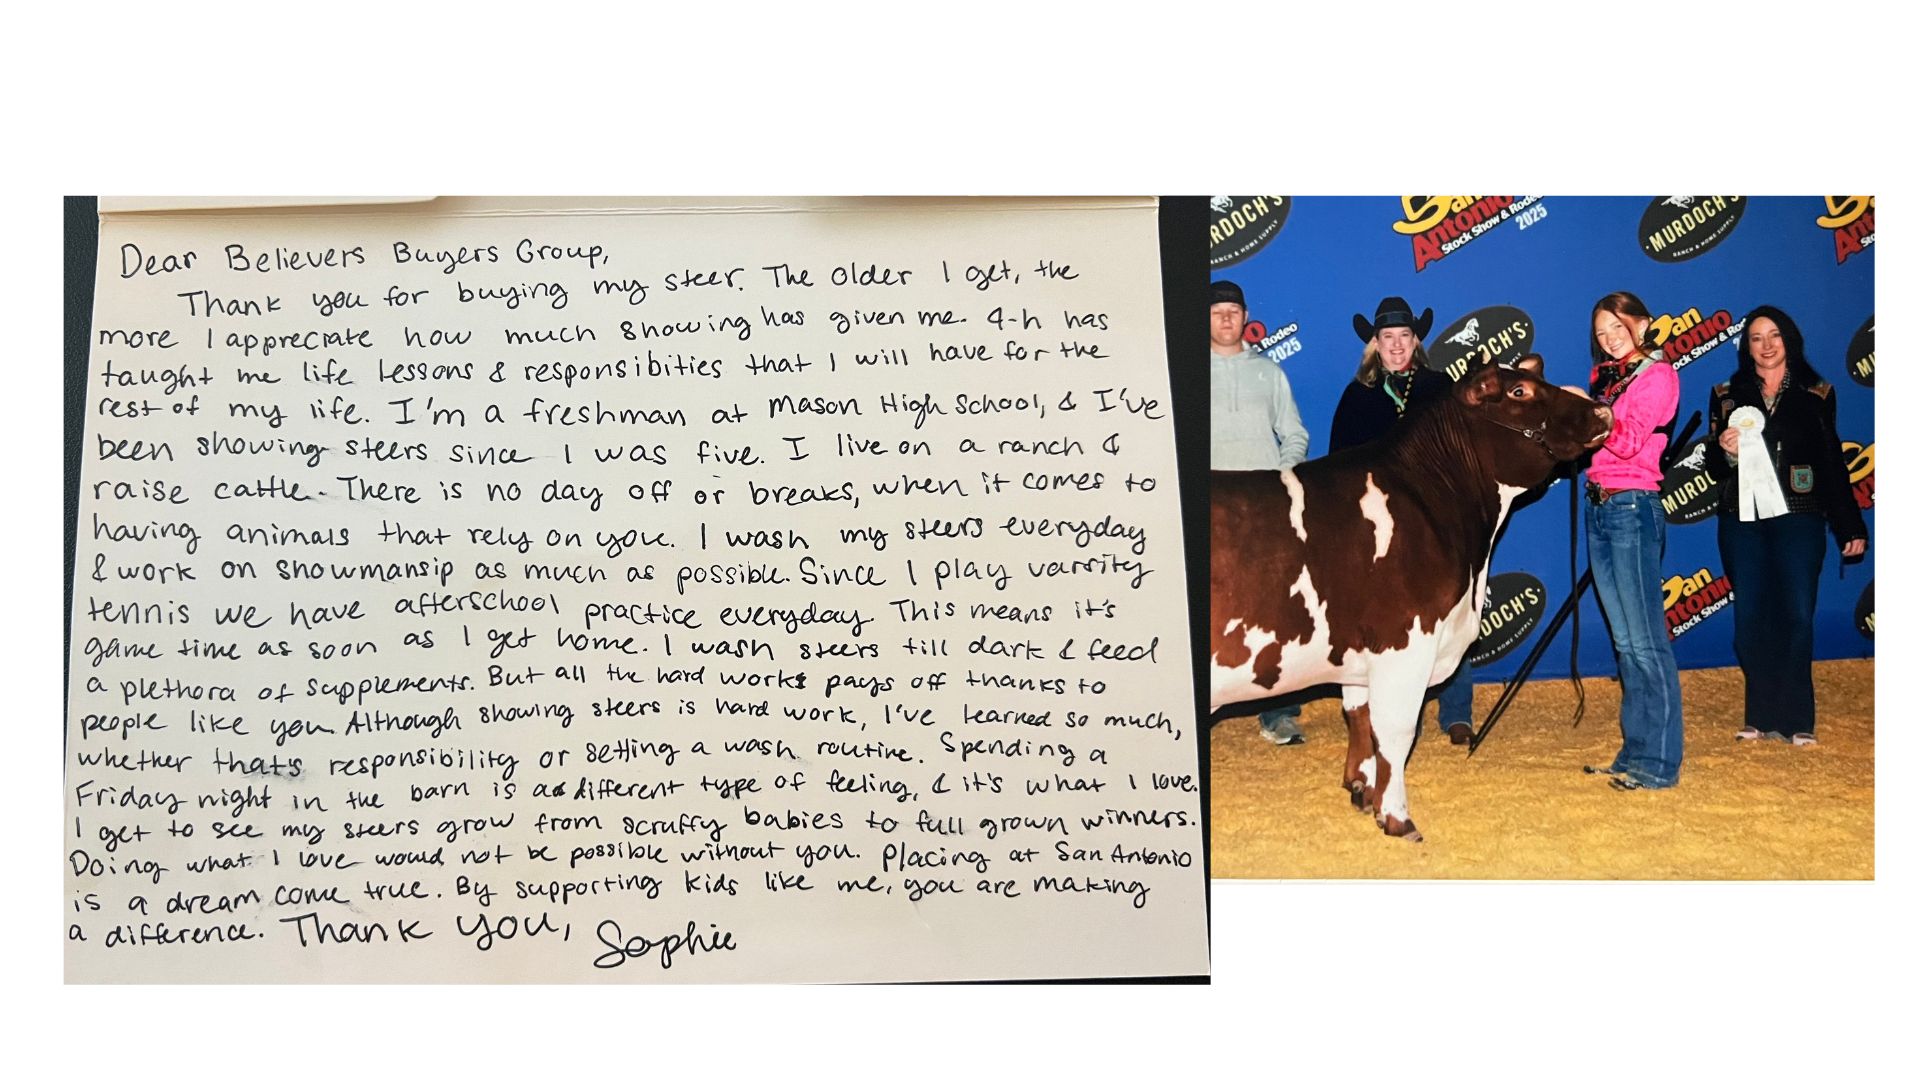 Dear Believers Buyers Group,
Thank you for buying my steer. The older I get, the
more I appreciate how much showing has given me. 4-h has
taught me life lessons & responsibities that I will have for the
rest of my life. I'm a freshman at Mason High School, & I've
been showing steers since I was five. I live on a ranch &
raise cattle. There is no day off or breaks, when it comes to
having animals that rely on you. I wash my steers everyday
& work on showmansip as much as possible. Since I play varsity
tennis we have afterschool practice everyday. This means it's
game time as soon as I get home. I wash steers till dark & feed
a plethora of supplements. But all the hard work pays off thanks to
people like you. Although showing steers is hard work, I've learned so much,
whether that's responsibility or setting a wash routine. Spending a
Friday night in the barn is a different type of feeling, & it's what I love.
I get to see my steers grow from scruffy babies to full grown winners.
Doing what I love would not be possible without you. Placing at San Antonio
is a dream come true. By supporting kids like me, you are making
a difference. Thank you, Sophie
RDOCH'S
RANCH & HOME SUPPLY
San
Antonio
Stock Show & Rodeo
2025
MURDOCH'S
RANCH & HOME SUPPLY
San
Anto
Sto
o
& Rodeo
2025
MURDOCH'S
San
tonio
ock Show & Rod
M
MURDO
RANCH & H
DOCH'S
HOME SUPPLY
San
tonio
Stock Show &